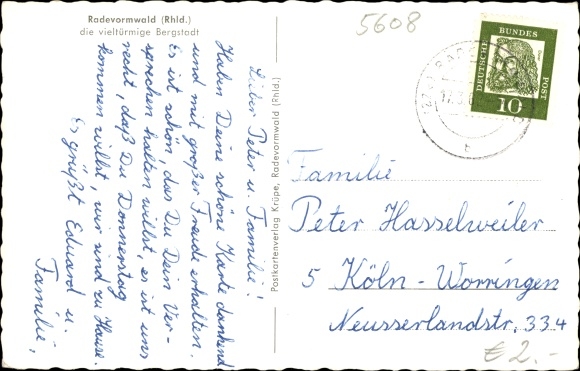 Radevormwald (Rhld.)
die vieltürmige Bergstadt
Lieber Peter u. Familie!
Haben Deine schöne Karte dankend
und mit großer Freude erhalten.
Es ist schön, das Du Dein Ver-
sprechen halten willst, es ist uns
recht, daß Du Donnerstag
kommen willst, wir sind zu Hause.
Es grüßt Eduard u.
Familie,
Postkartenverlag Krüpe, Radevormwald (Rhld.)
5608
DEUTSCHE
BUNDES
POST
10
b
Familie
Peter Hasselweiler
5 Köln-Worringen
Neusserlandstr. 334
€ 2.-